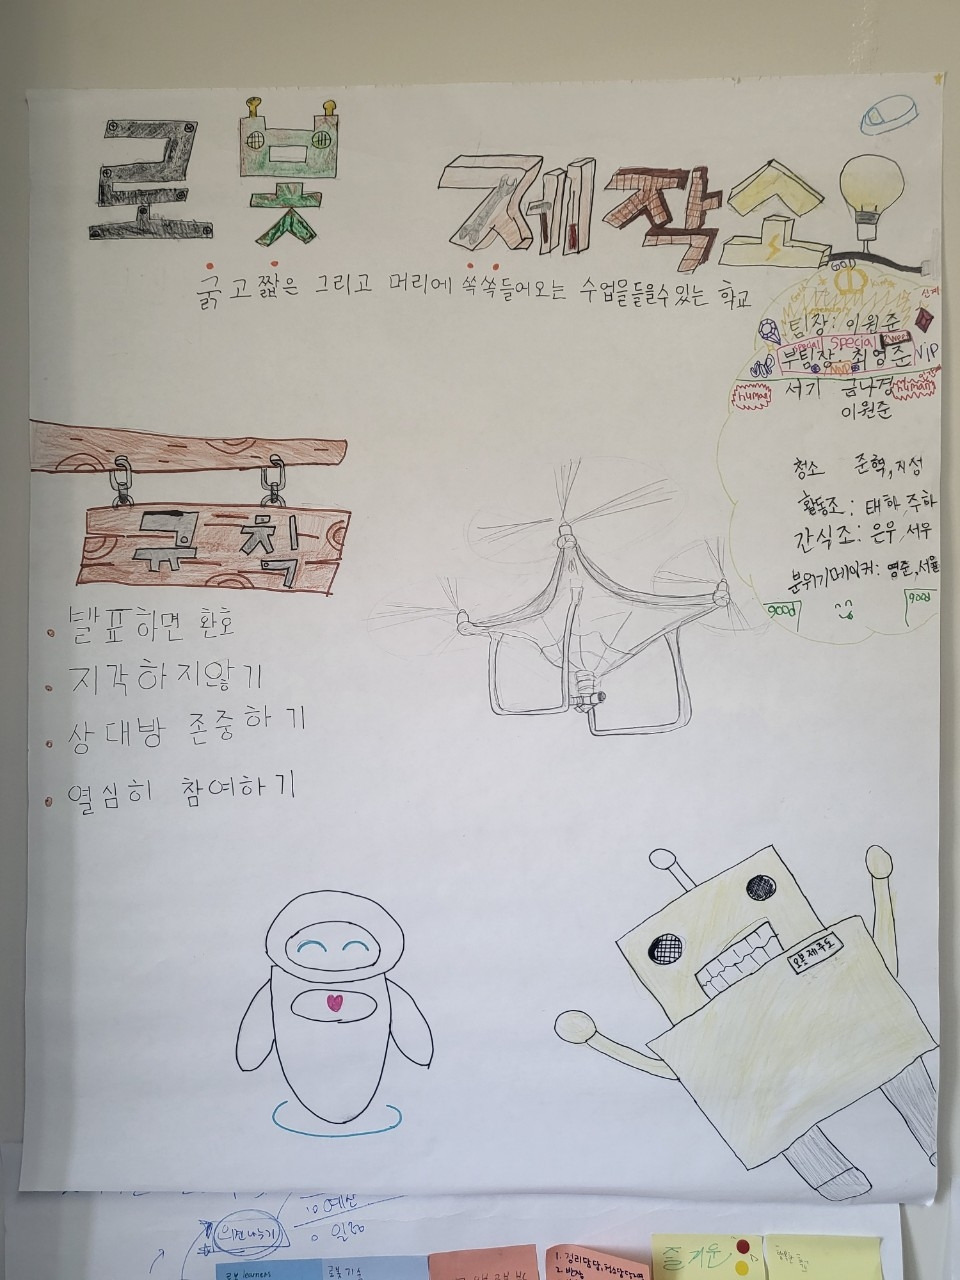 로봇 제작소
굵고 짧은 그리고 머리에 쏙쏙들어오는 수업을들을수있는 학교
팀장: 이원준
special special
부팀장: 최영준 VIP
VIP
human 서기 금나경 human
이원준
청소 준혁, 지성
활동조: 태하, 주하
간식조: 은우, 서우
분위기메이커: 영준, 서율
규칙
발표하면 환호
지각하지않기
상대방 존중하기
열심히 참여하기
예산
의견나누기
일정
즐거운